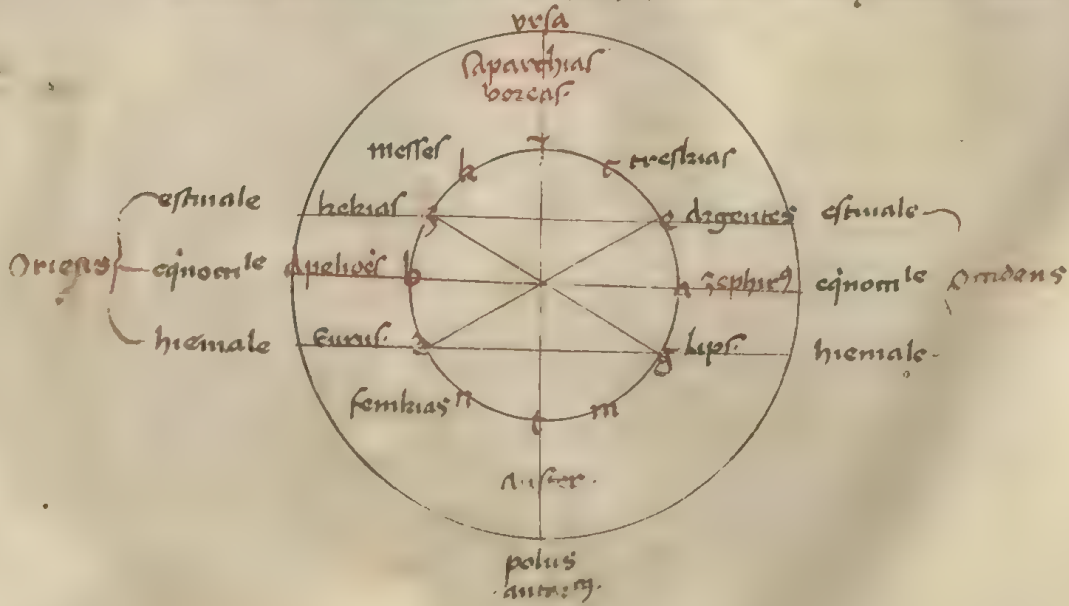 vrſa
ſaparchias
boreaſ.
meſſes
k
c
treſkias
eſtiuale
hekias
z
e
argentes
eſtiuale
Oriēſ
eq̇noctıle
apelioc̄s
b
a
zephir⁹
eq̇noctıle
Occidens
hiemale
Eurus.
lips.
g
hiemale.
fenikias
n
m
f
Auster.
polus